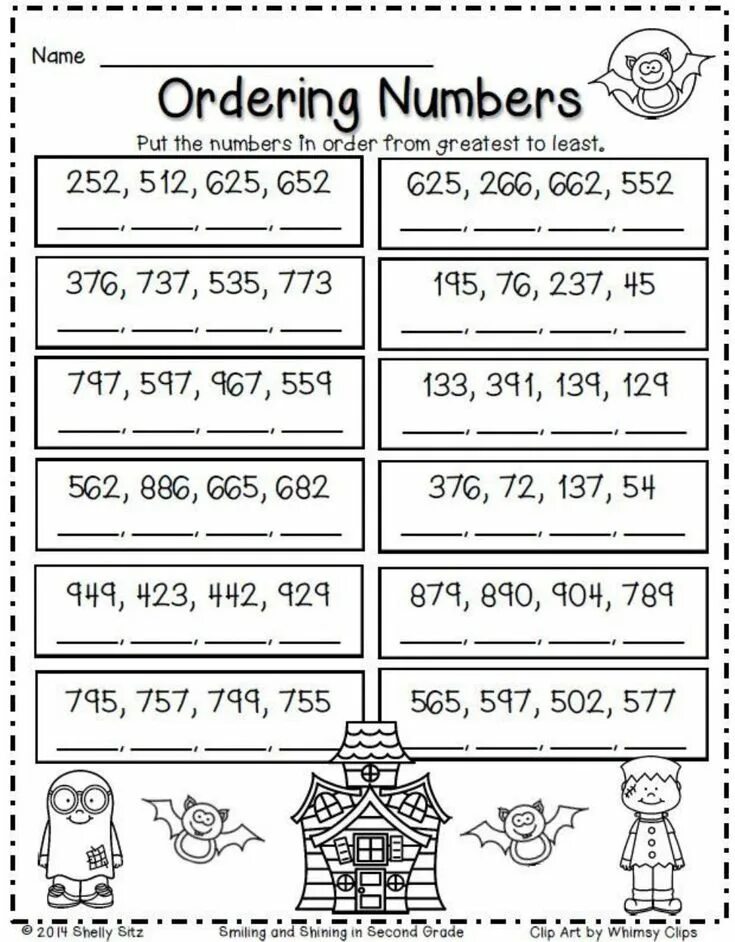 Name
Ordering Numbers
Put the numbers in order from greatest to least.
252, 512, 625, 652
___, ___, ___, ___
625, 266, 662, 552
___, ___, ___, ___
376, 737, 535, 773
___, ___, ___, ___
195, 76, 237, 45
___, ___, ___, ___
797, 597, 967, 559
___, ___, ___, ___
133, 391, 139, 129
___, ___, ___, ___
562, 886, 665, 682
___, ___, ___, ___
376, 72, 137, 54
___, ___, ___, ___
949, 423, 442, 929
___, ___, ___, ___
879, 890, 904, 789
___, ___, ___, ___
795, 757, 799, 755
___, ___, ___, ___
565, 597, 502, 577
___, ___, ___, ___
© 2014 Shelly Sitz
Smiling and Shining in Second Grade
Clip Art by Whimsy Clips